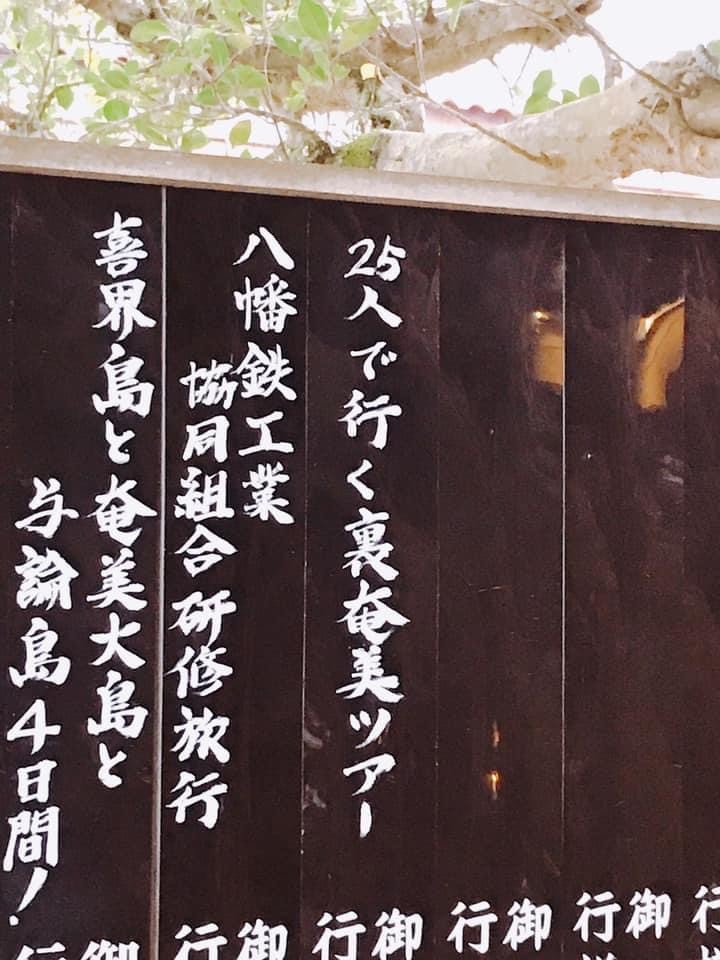 25人で行く裏奄美ツアー
八幡鉄工業
協同組合研修旅行
喜界島と奄美大島と
与論島4日間!
行
御
行
御
行
御
行
御
行
御
行